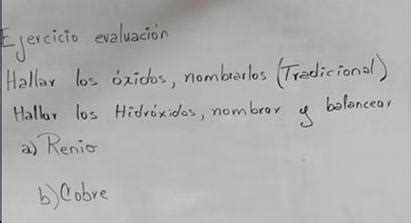 Ejercicio evaluación
Hallar los óxidos, nombrarlos (Tradicional)
Hallar los Hidróxidos, nombrar y balancear
a) Renio
b) Cobre